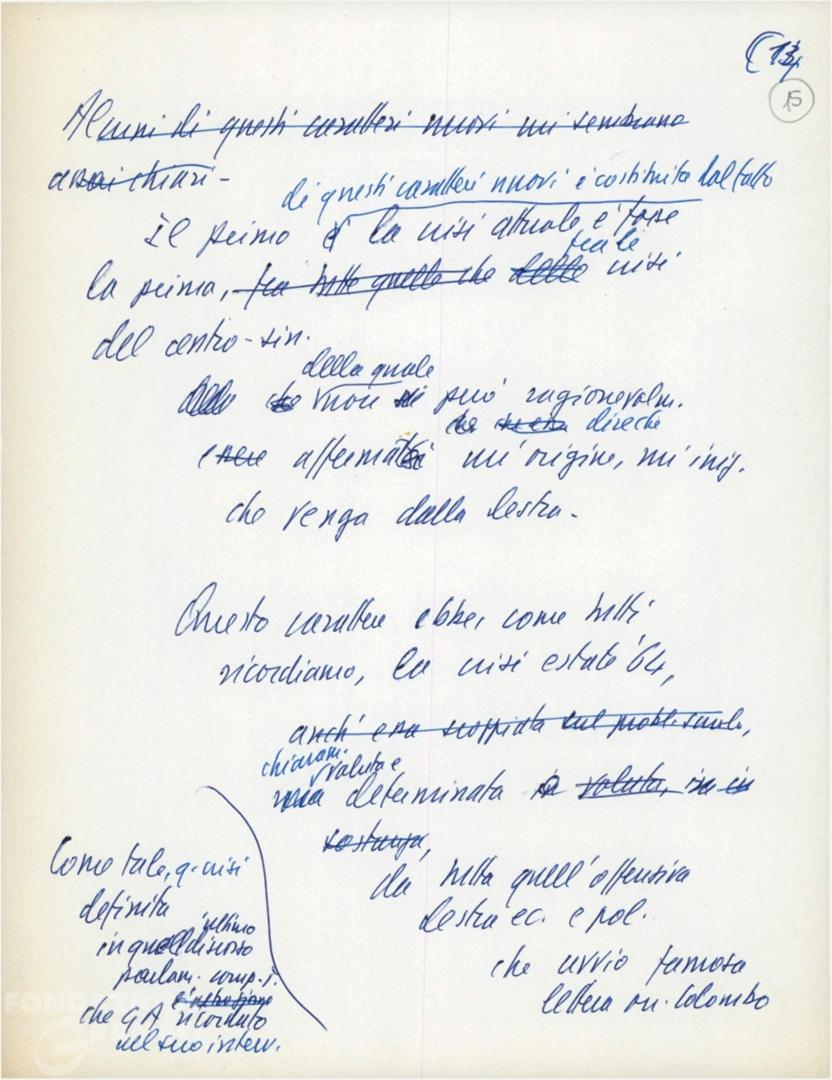 (13
15
Alcuni di questi caratteri nuovi mi sembrano
assai chiari -
di questi caratteri nuovi è costituita dal fatto
Il primo è la crisi attuale è forse
reale
la prima, fra tutte quelle che delle crisi
del centro-sin.
della quale
che non si può ragionevolm.
che direche
essere affermarsi un'origine, un'iniz.
che venga dalla destra -
Questo carattere ebbe, come tutti
ricordiamo, la crisi estate '64,
anch' era scoppiata sul probl. scuola,
chiaram.
voluta e
ma determinata o voluta, sia in
sostanza,
da tutta quell'offensiva
destra ec. e pol.
che avviò famosa
lettera on. Colombo
Come tale, q. crisi
definita
ultimo
in quell discorso
parlam. comp. T.
che GA ricordato
nel suo interv.
FONDAZ